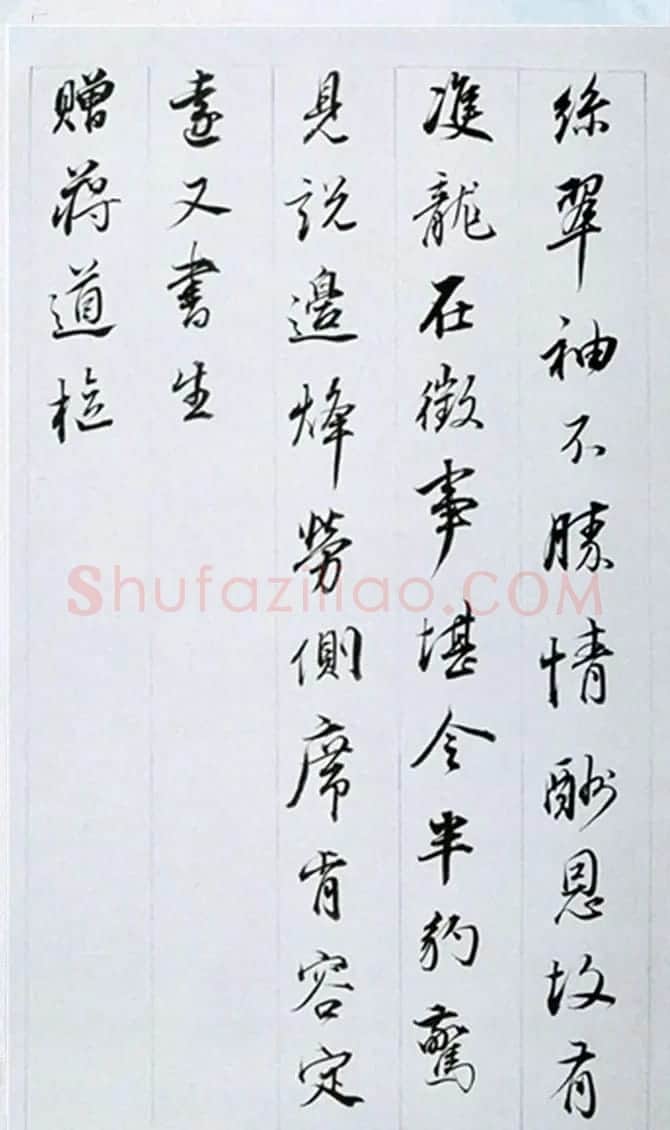 絲翠袖不勝情酬恩故有
雙龍在徵事堪令半豹驚
見說邊烽勞側席肯容定
遠又書生
贈蔣道樞
Shufaziliao.COM